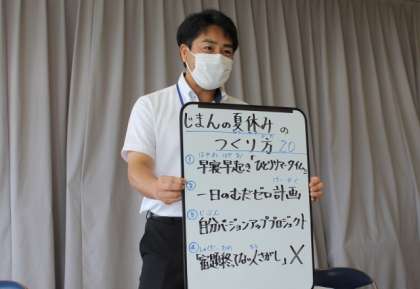 じまんの夏休みの
つくり方20
① 早寝早起き「ひとりサマータイム」
② 一日のむだゼロ計画
③ 自分バージョンアッププロジェクト
④ 「宿題終ってな